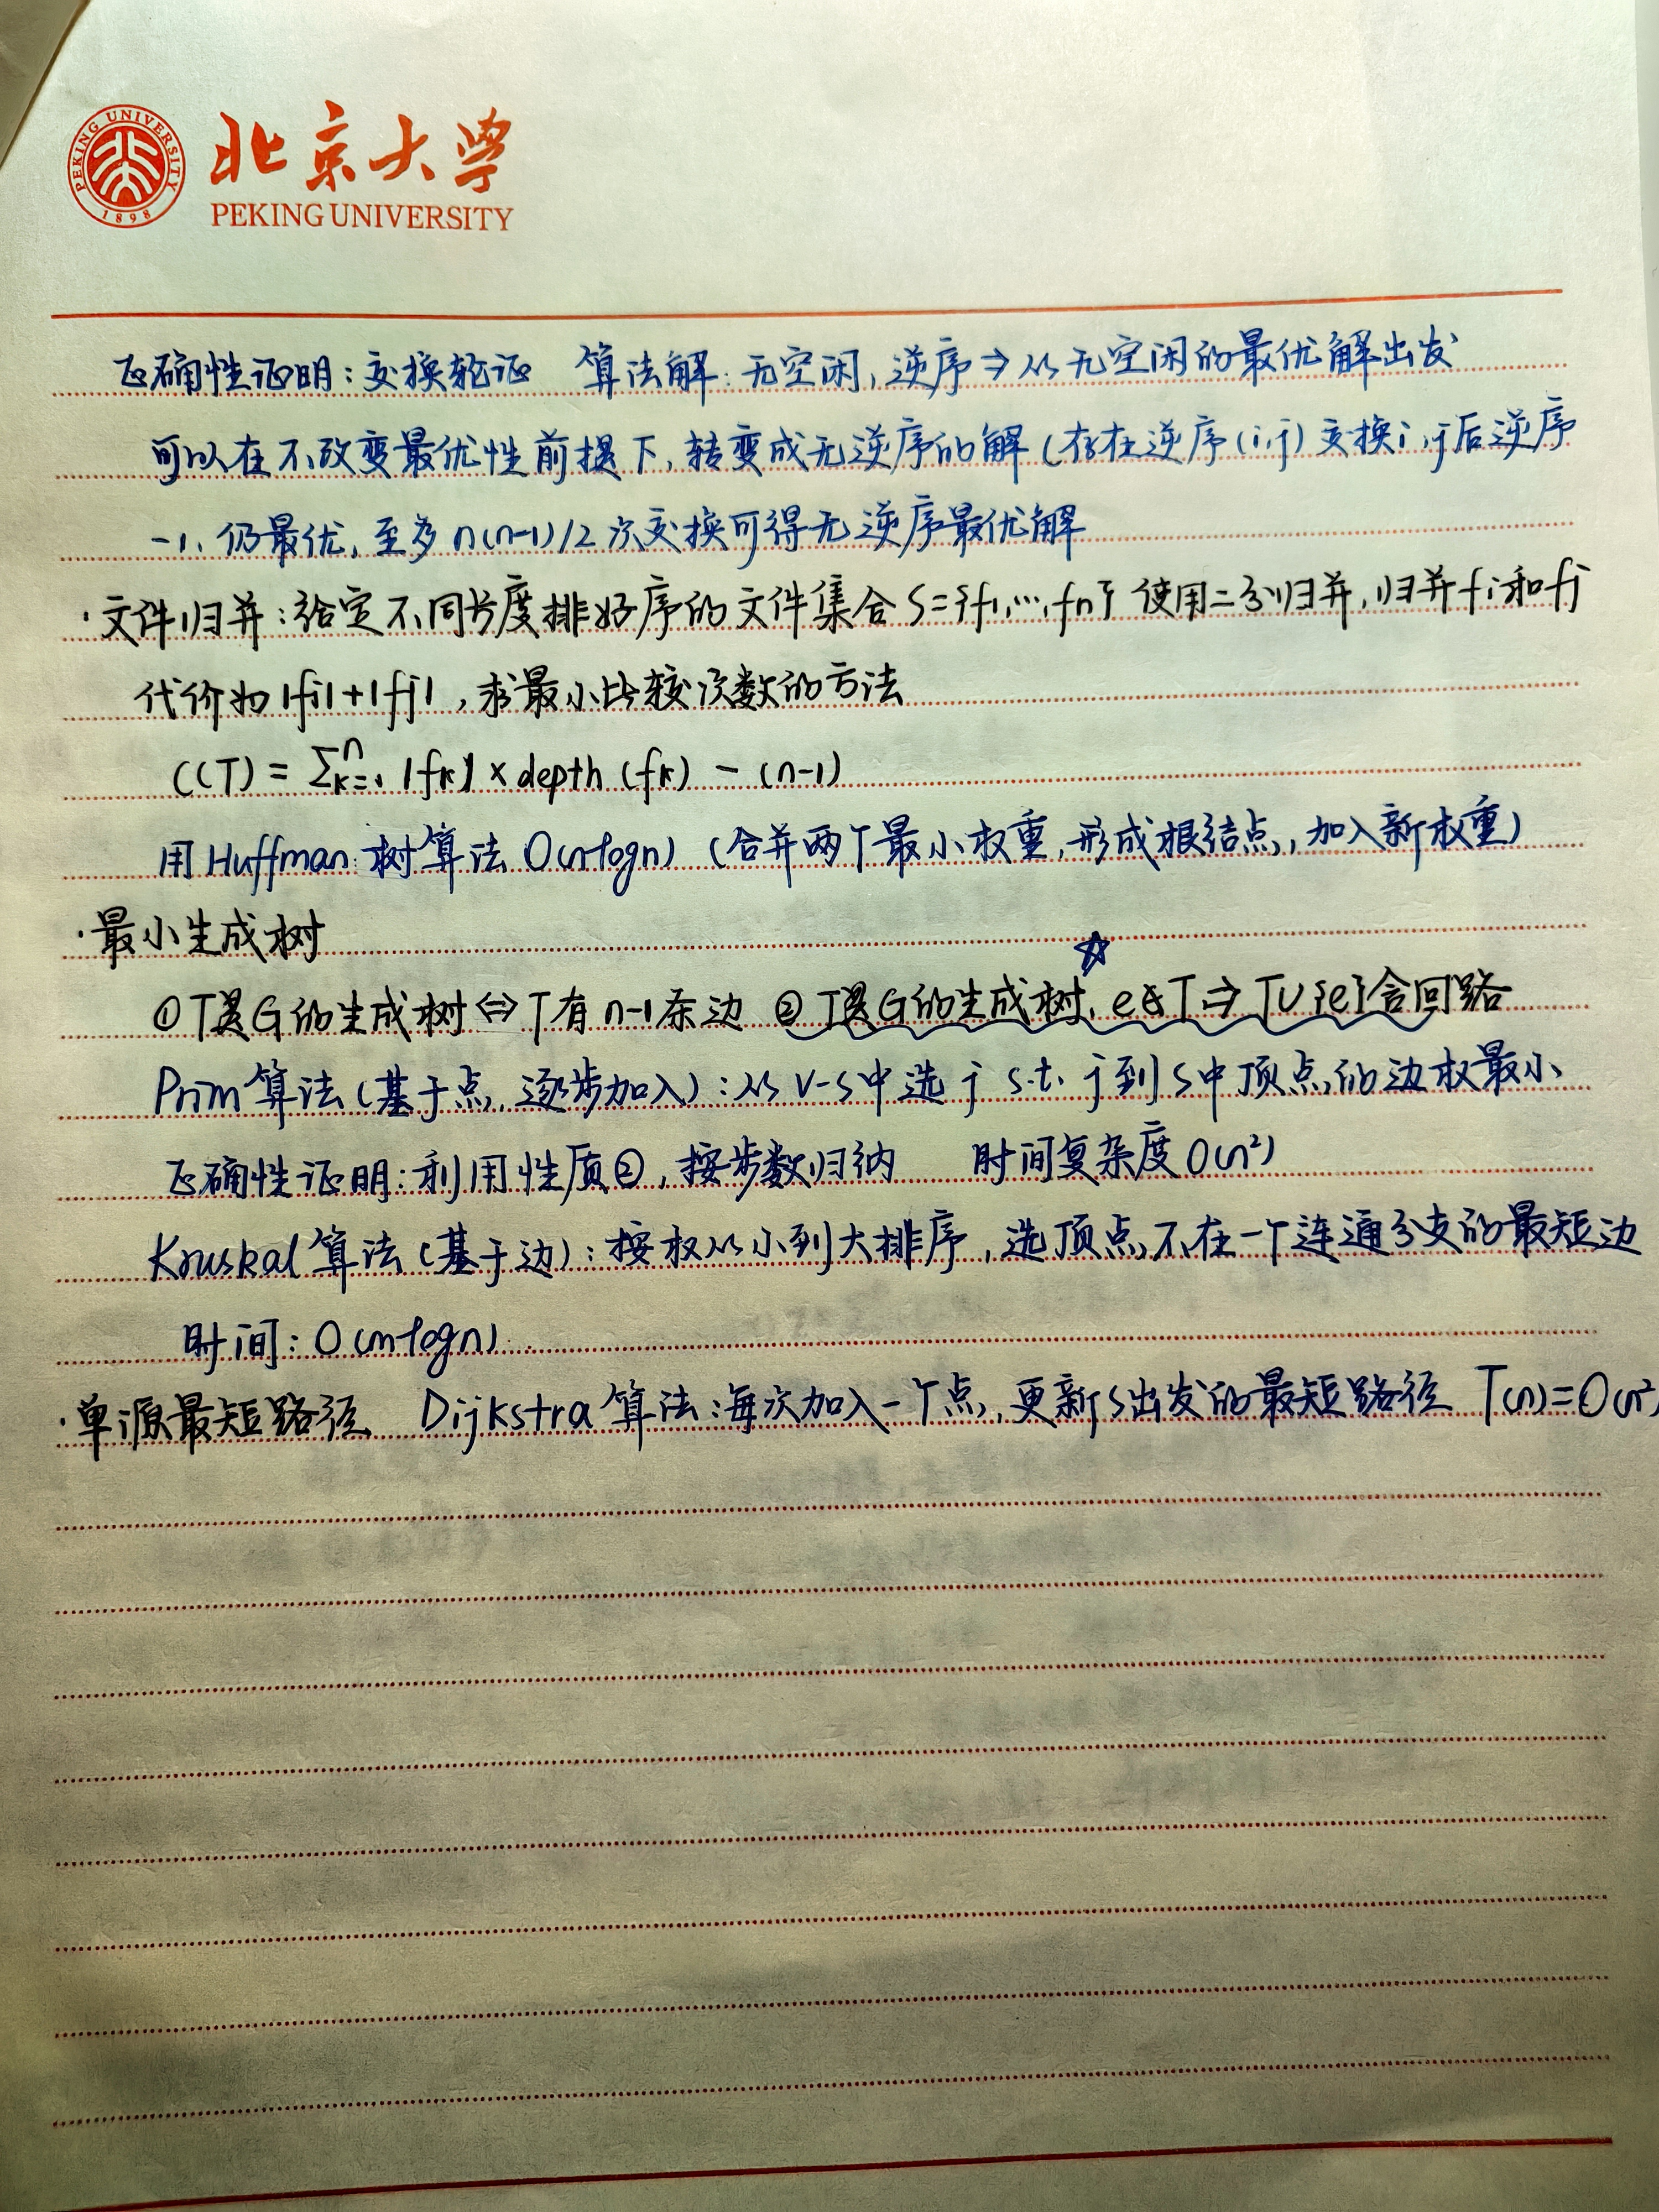 PEKING UNIVERSITY
1898
北京大学
PEKING UNIVERSITY
正确性证明：交换论证 算法解：无空闲，逆序⇒从无空闲的最优解出发
可以在不改变最优性前提下，转变成无逆序的解（存在逆序(i,j)交换i,j后逆序
-1，仍最优，至多n(n-1)/2次交换可得无逆序最优解
·文件归并：给定不同长度排好序的文件集合S={f1,…,fn}使用二分归并，归并fi和fj
代价为|fi|+|fj|，求最小比较次数的方法
C(T)=∑ⁿₖ₌₁|fk|×depth(fk)-(n-1)
用Huffman树算法O(nlogn)（合并两个最小权重，形成根结点，加入新权重）
·最小生成树
☆
①T是G的生成树⇔T有n-1条边 ②T是G的生成树，e∉T⇒T∪{e}含回路
Prim算法（基于点，逐步加入）：从V-S中选j s.t. j到S中顶点的边权最小
正确性证明：利用性质②，按步数归纳 时间复杂度O(n²)
Kruskal算法（基于边）：按权从小到大排序，选顶点不在一个连通分支的最短边
时间：O(mlogn)
·单源最短路径 Dijkstra算法：每次加入一个点，更新S出发的最短路径 T(n)=O(n²)